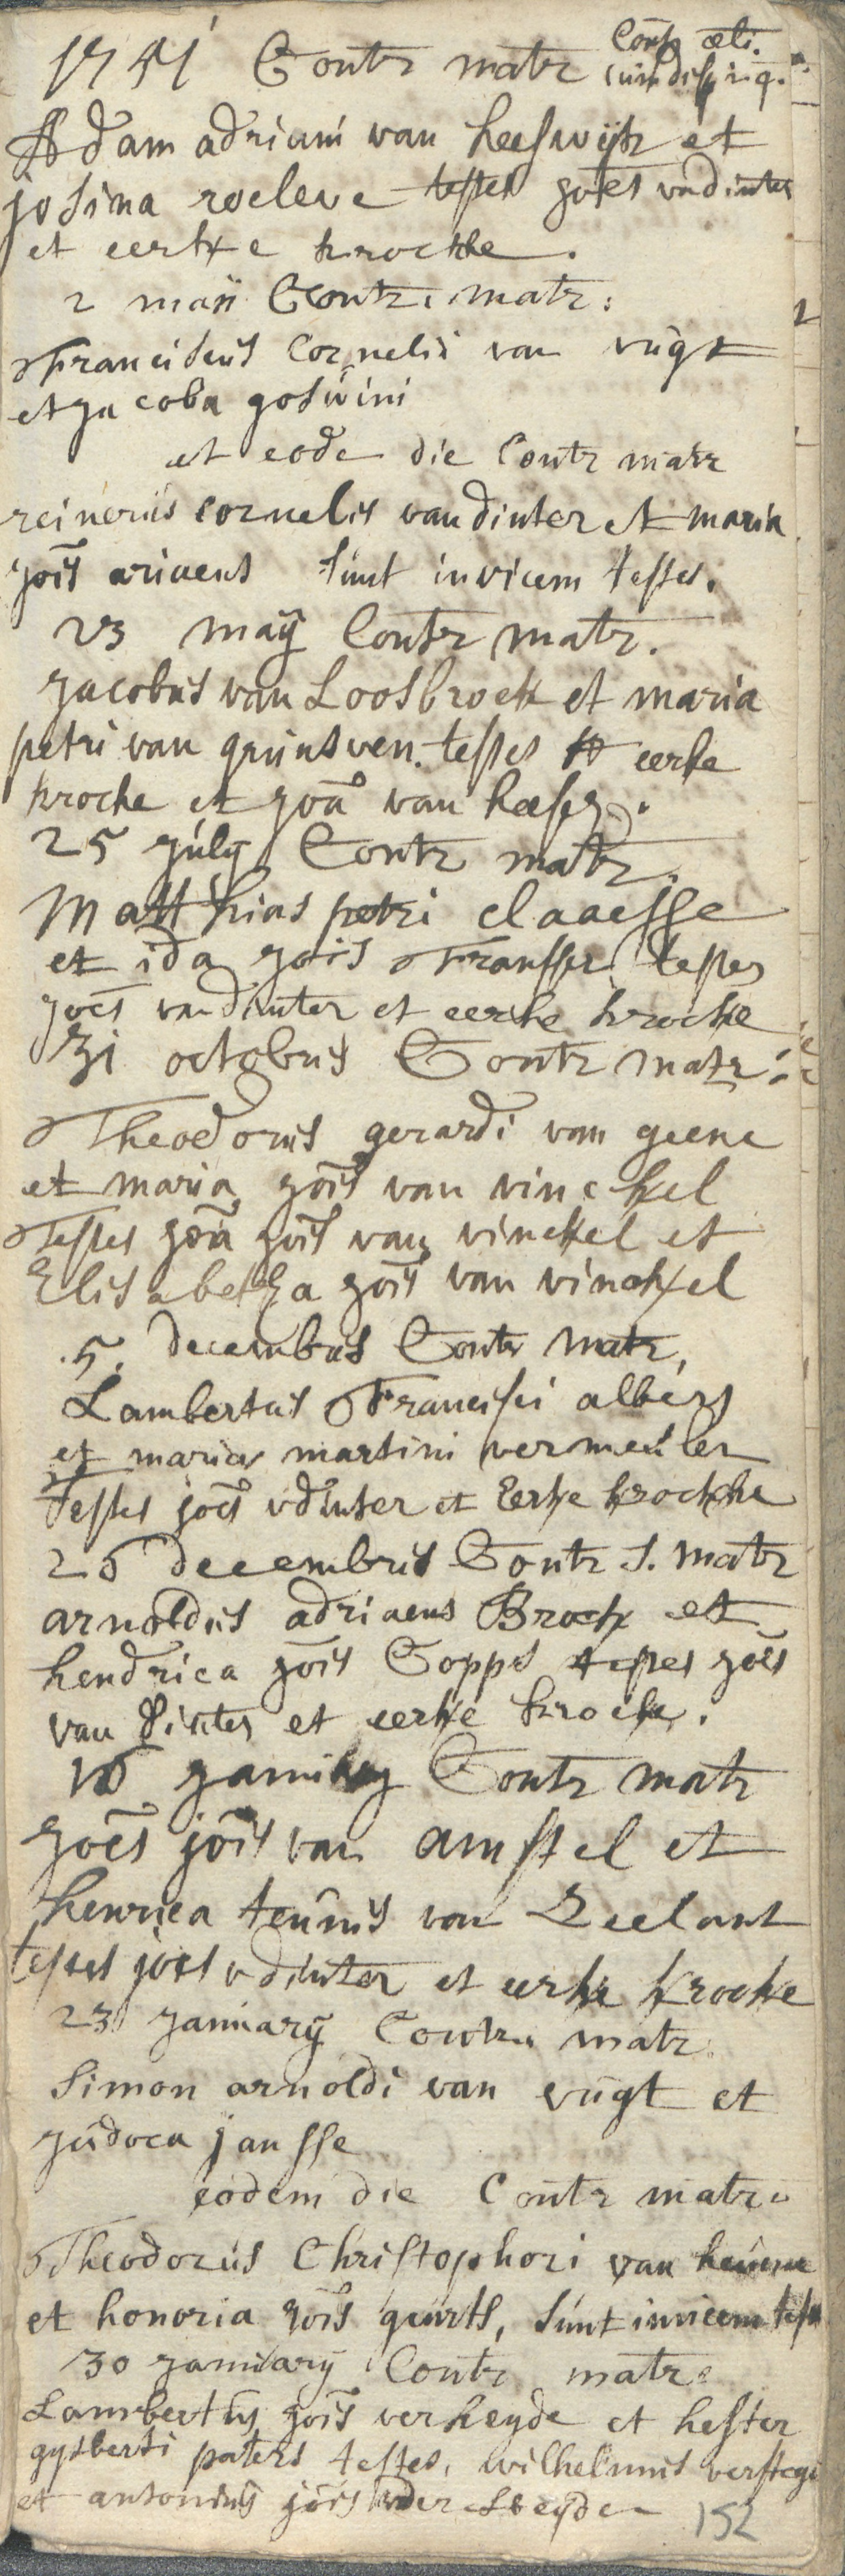 1741 Contr matr
Adam adriani van heeswijk et
josina roeleve testes joēs vadinter
et eerke krocke.
2 maij Contr. matr:
Franciscus Cornelii van vugt
et jacoba goswini
et eodē die Contr matr
reinerus cornelis van dinter et maria
jois ariaens sunt invicem testes.
23 maij Contr matr.
jacobus van Loosbroek et maria
petri van grunsven. testes eerke
krocke et joā van
25 july Contr matr.
Matthias petri claaesse
et ida jois Fransser testes
joēs vadinter et eerke krocke
31 octobris Contr matr:
Theodorus gerardi van geene
et maria jois van vinckel
Testes joā jois van vinckel et
Elisabetha jois van vinckel
5. decembris Contr matr,
Lambertus Francisci albers
et maria martini vermeulen
Testes joēs vdinter et Eerke krocke
26 decembris Contr S. matr
arnoldus adriaens Brock et
hendrica jois Copps testes joēs
van dinter et eerke krocke.
16 january Contr matr
joēs jois van amstel et
henrica teunis van Zeelant
testes joēs vdinter et eerke krocke
23 january Contr. matr.
Simon arnoldi van vugt et
judoca jansse
eodem die Contr matr.
Theodorus Christophori van
et honoria jois geurts, sunt invicem
30 january Contr matr.
Lambertus jois verheyde et hester
gysberti paters testes, wilhelmus verstege
et antonius jois vder Heyden
152